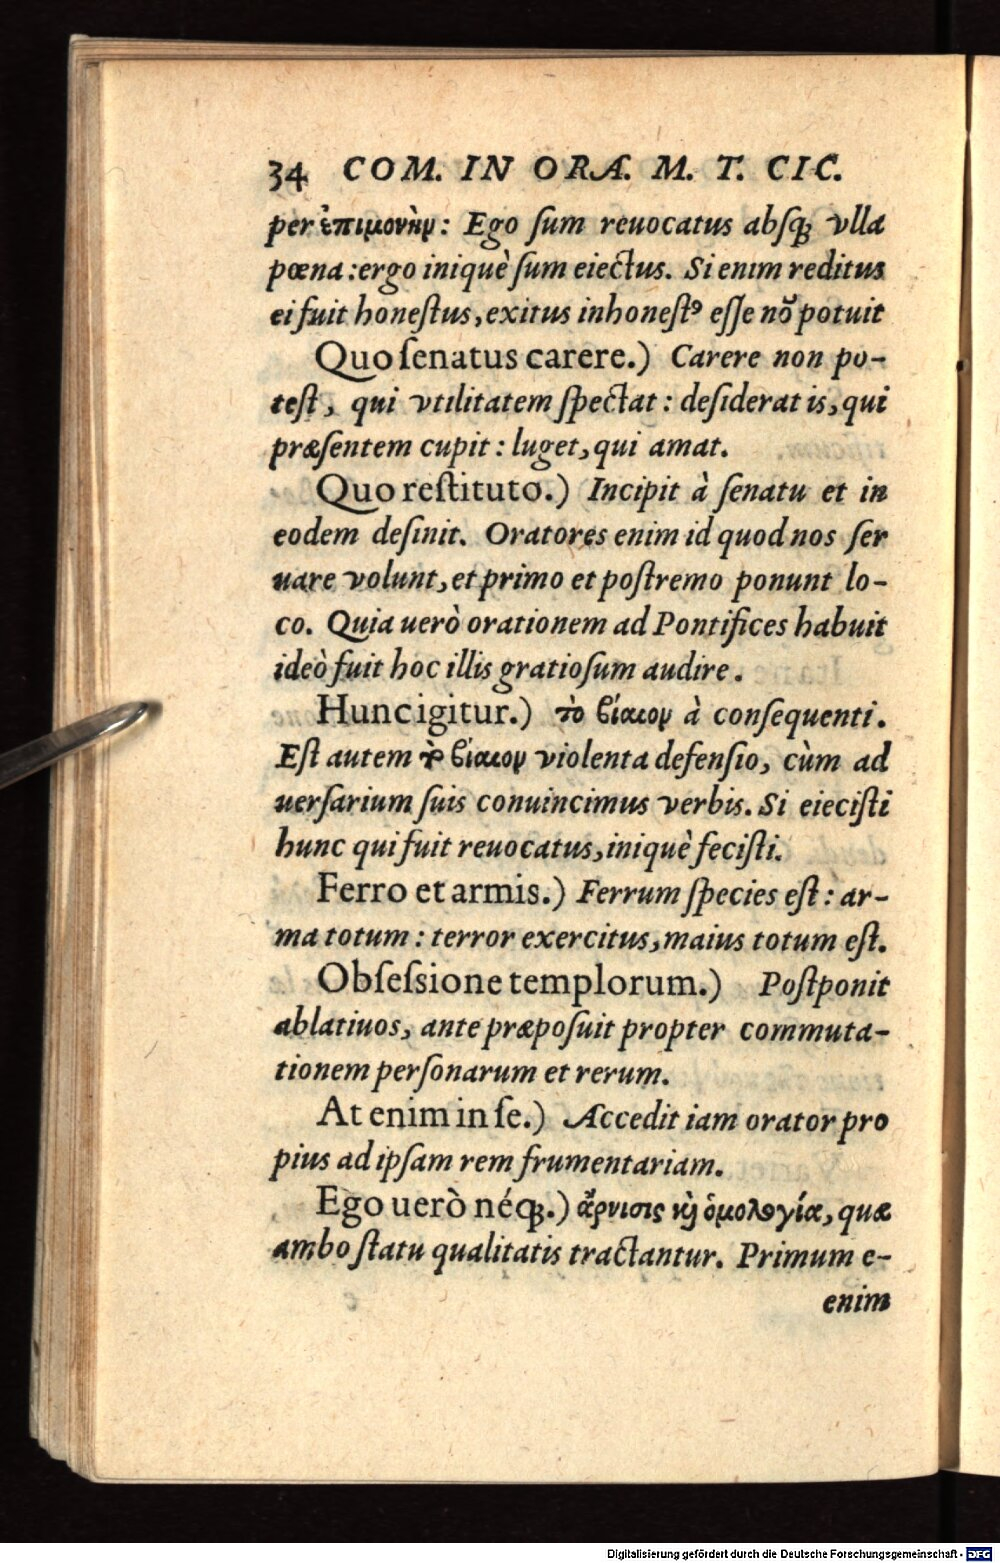 34 COM. IN ORA. M. T. CIC.
per ἐπιμονὴν: Ego ſum reuocatus abſq; vlla
pœna: ergo iniquè ſum eiectus. Si enim reditus
ei fuit honeſtus, exitus inhoneſtꝰ eſſe nō potuit
Quo ſenatus carere.) Carere non po-
teſt, qui vtilitatem ſpectat: deſiderat is, qui
præſentem cupit: luget, qui amat.
Quo reſtituto.) Incipit à ſenatu et in
eodem deſinit. Oratores enim id quod nos ſer
uare volunt, et primo et poſtremo ponunt lo-
co. Quia uerò orationem ad Pontifices habuit
ideò fuit hoc illis gratioſum audire.
Hunc igitur.) τὸ βίαιον à conſequenti.
Eſt autem τὸ βίαιον violenta defenſio, cùm ad
uerſarium ſuis conuincimus verbis. Si eieciſti
hunc qui fuit reuocatus, iniquè feciſti.
Ferro et armis.) Ferrum ſpecies eſt: ar-
ma totum: terror exercitus, maius totum eſt.
Obſeſsione templorum.) Poſtponit
ablatiuos, ante præpoſuit propter commuta-
tionem perſonarum et rerum.
At enim in ſe.) Accedit iam orator pro
pius ad ipſam rem frumentariam.
Ego uerò néq;.) ἄρνισις κỳ ὁμολογία, quæ
ambo ſtatu qualitatis tractantur. Primum e-
enim
Digitalisierung gefördert durch die Deutsche Forschungsgemeinschaft - DFG